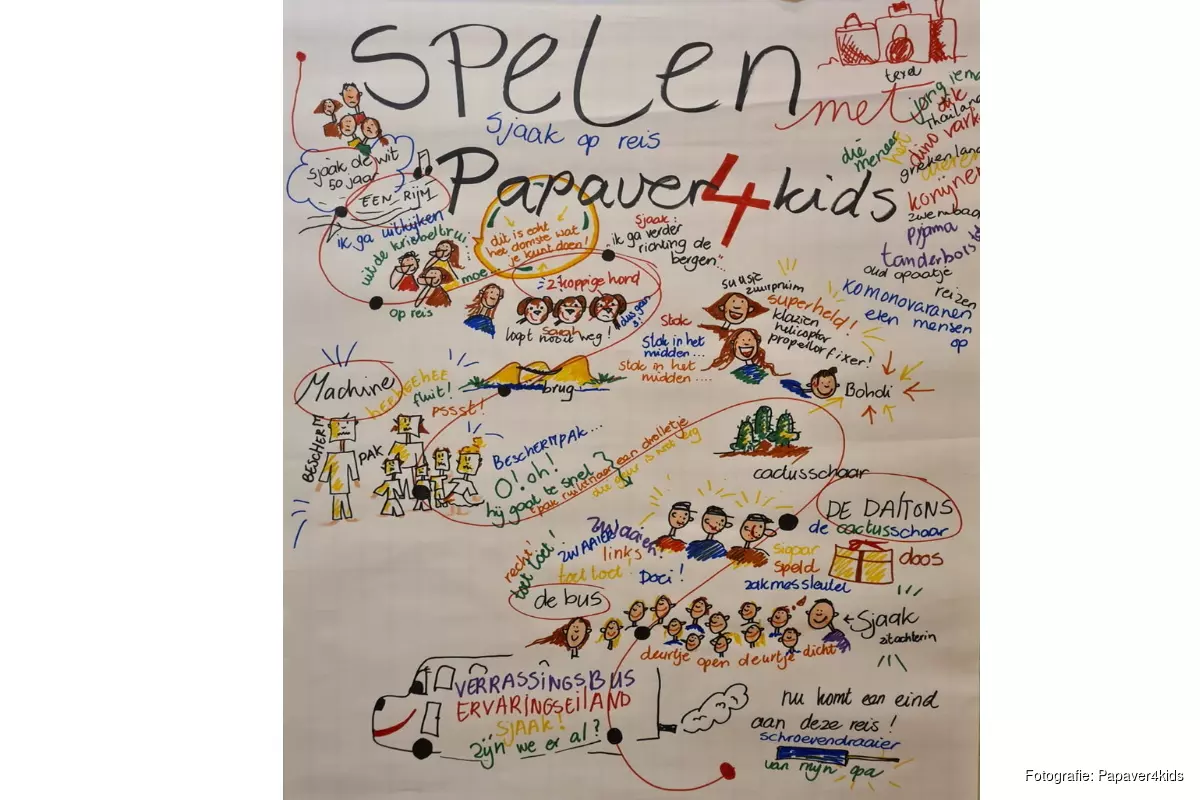 SPELEN
met
Sjaak op reis
Papaver4kids
texel
jong
dik
Thailand
die
meneer
dino
Griekenland
zwembad
pyjama
oud opaatje
reizen
komonovaranen
eten mensen
op
Sjaak de wit
50 jaar
EEN RIJM
ik ga uitkijken
uit de kriebeltrui
moe
op reis
dit is echt
het domste wat
je kunt doen!
Sjaak:
"ik ga verder
richting de
bergen"...
2 koppige hond
Sarah
loopt nooit weg!
suusje
zuurpruim
superheld!
klazien
helicopter
propellor fixer!
Stok
Stok in het
midden...
Stok in het
midden....
Bohdi
Machine
heeheehee
fluit!
PSSST!
brug
BESCHERM
PAK
BESCHERMPAK...
O! oh!
hij gaat te snel
pak ruikt naar een drolletje
die geur is niet erg
cactusschaar
DE DALTONS
de cactusschaar
zwaaien!
ZWAAIEN
links
recht!
toet toet!
toet toet!
Doei!
speld
zakmessleutel
doos
de bus
Sjaak
zit achterin
deurtje open deurtje dicht
VERRASSINGSBUS
ERVARINGSEILAND
SJAAK!
zijn we er al?
nu komt een eind
aan deze reis!
schroevendraaier
van mijn opa
Fotografie: Papaver4kids